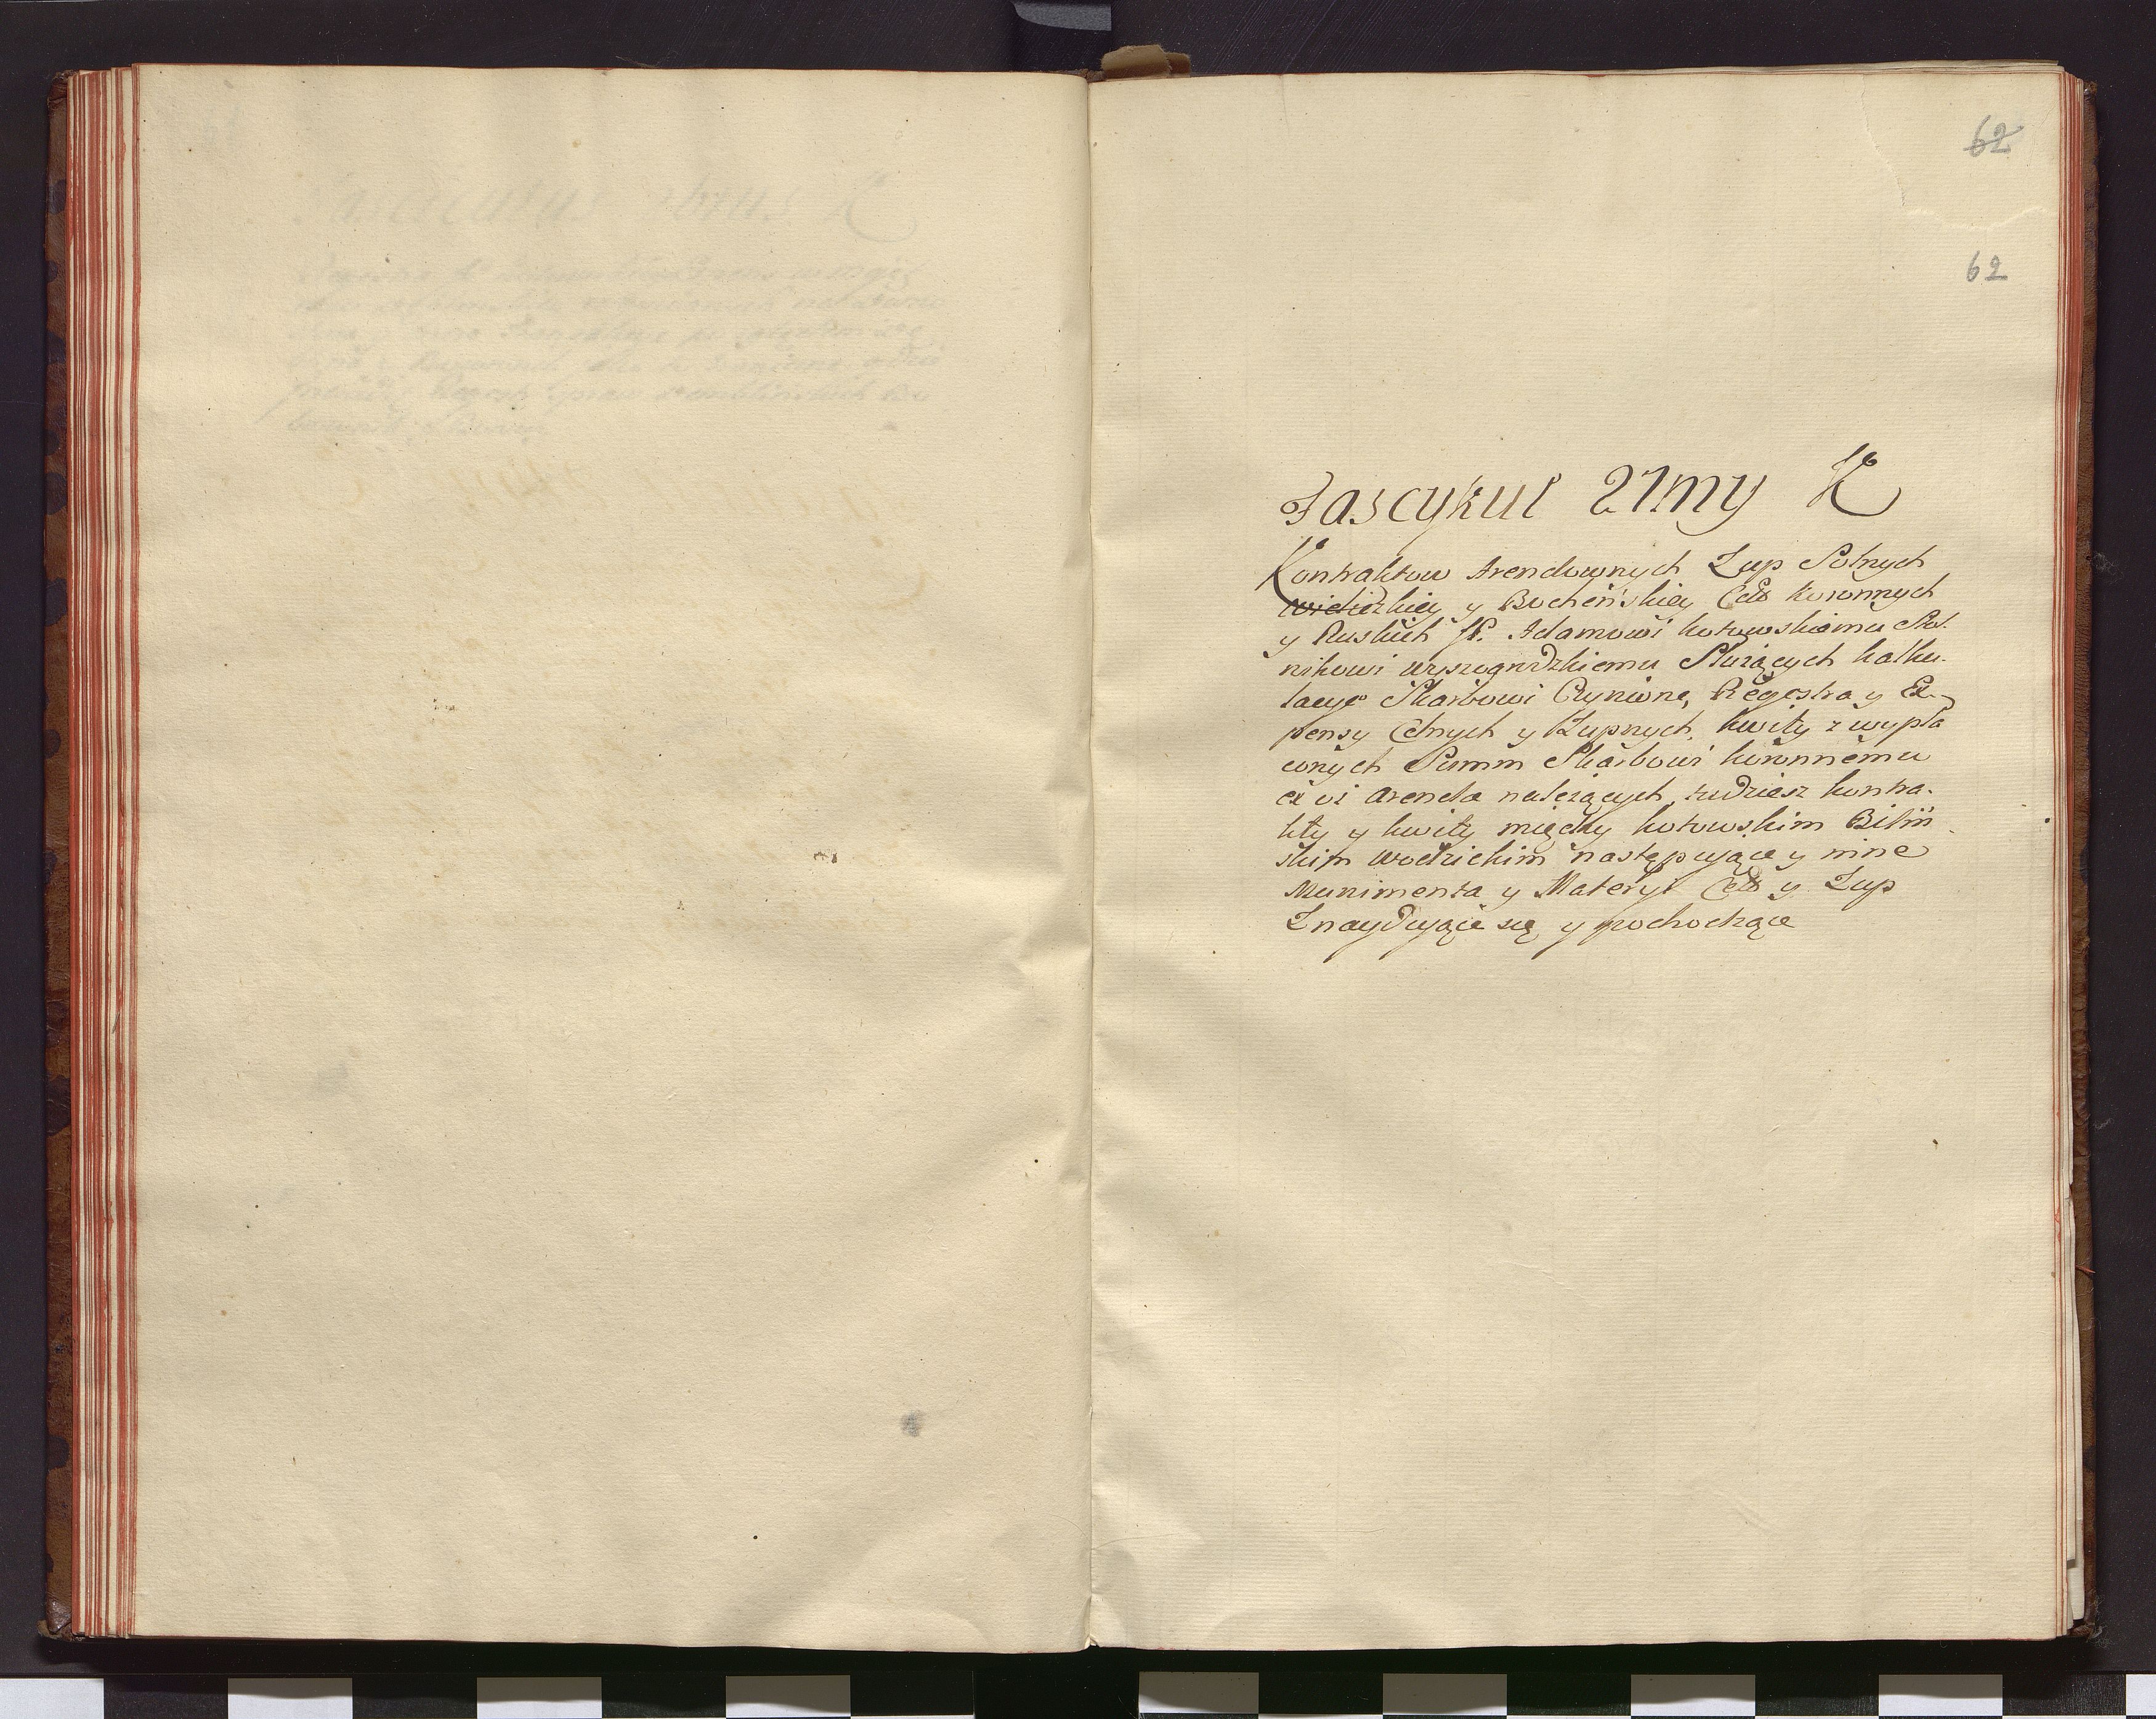 62
62
Fascykuł 21my K
Kontraktow Arendownych Zup Solnych
Wielickiey y Bocheńskiey Ceł koronnych
y Ruskich JP. Adamowi kotowskiemu Stol
nikowi wyszogrodzkiemu Służących kalku-
lacye Skarbowi Czynione, Regestra y Ex-
pensy Celnych y Żupnych, kwity z wypła
conych Summ Skarbowi koronnemu
ex vi Arenda należących, tudziesz kontra-
kty y kwity między kotowskim Biliń
skim Wodzickim następuiące y inne
Munimenta y Materyi Ceł y Zup
Znayduiące się y pochodzące